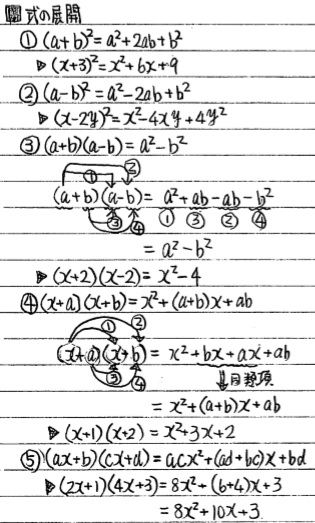 圏式の展開
① (a+b)²=a²+2ab+b²
▷ (x+3)²=x²+6x+9
② (a-b)²=a²-2ab+b²
▷ (x-2y)²=x²-4xy+4y²
③ (a+b)(a-b)=a²-b²
① ②
(a+b)(a-b)= a²+ab-ab-b²
③ ④ ① ③ ② ④
= a²-b²
▷ (x+2)(x-2)=x²-4
④ (x+a)(x+b)=x²+(a+b)x+ab
① ②
(x+a)(x+b)= x²+bx+ax+ab
③ ④ ⇓同類項
= x²+(a+b)x+ab
▷ (x+1)(x+2)=x²+3x+2
⑤ (ax+b)(cx+d)=acx²+(ad+bc)x+bd
▷ (2x+1)(4x+3)=8x²+(6+4)x+3
=8x²+10x+3